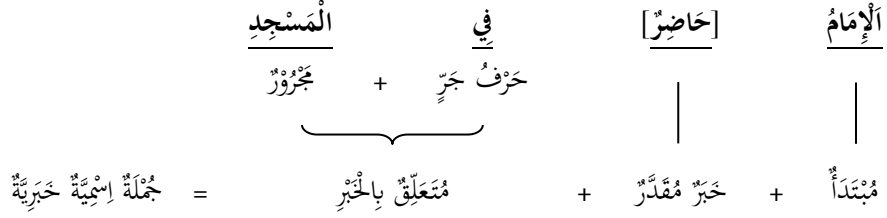 اَلْإِمَامُ [حَاضِرٌ] فِي الْمَسْجِدِ
حَرْفُ جَرٍّ + مَجْرُوْرٌ
مُبْتَدَأٌ + خَبَرٌ مُقَدَّرٌ + مُتَعَلِّقٌ بِالْخَبْرِ = جُمْلَةٌ اِسْمِيَّةٌ خَبَرِيَّةٌ